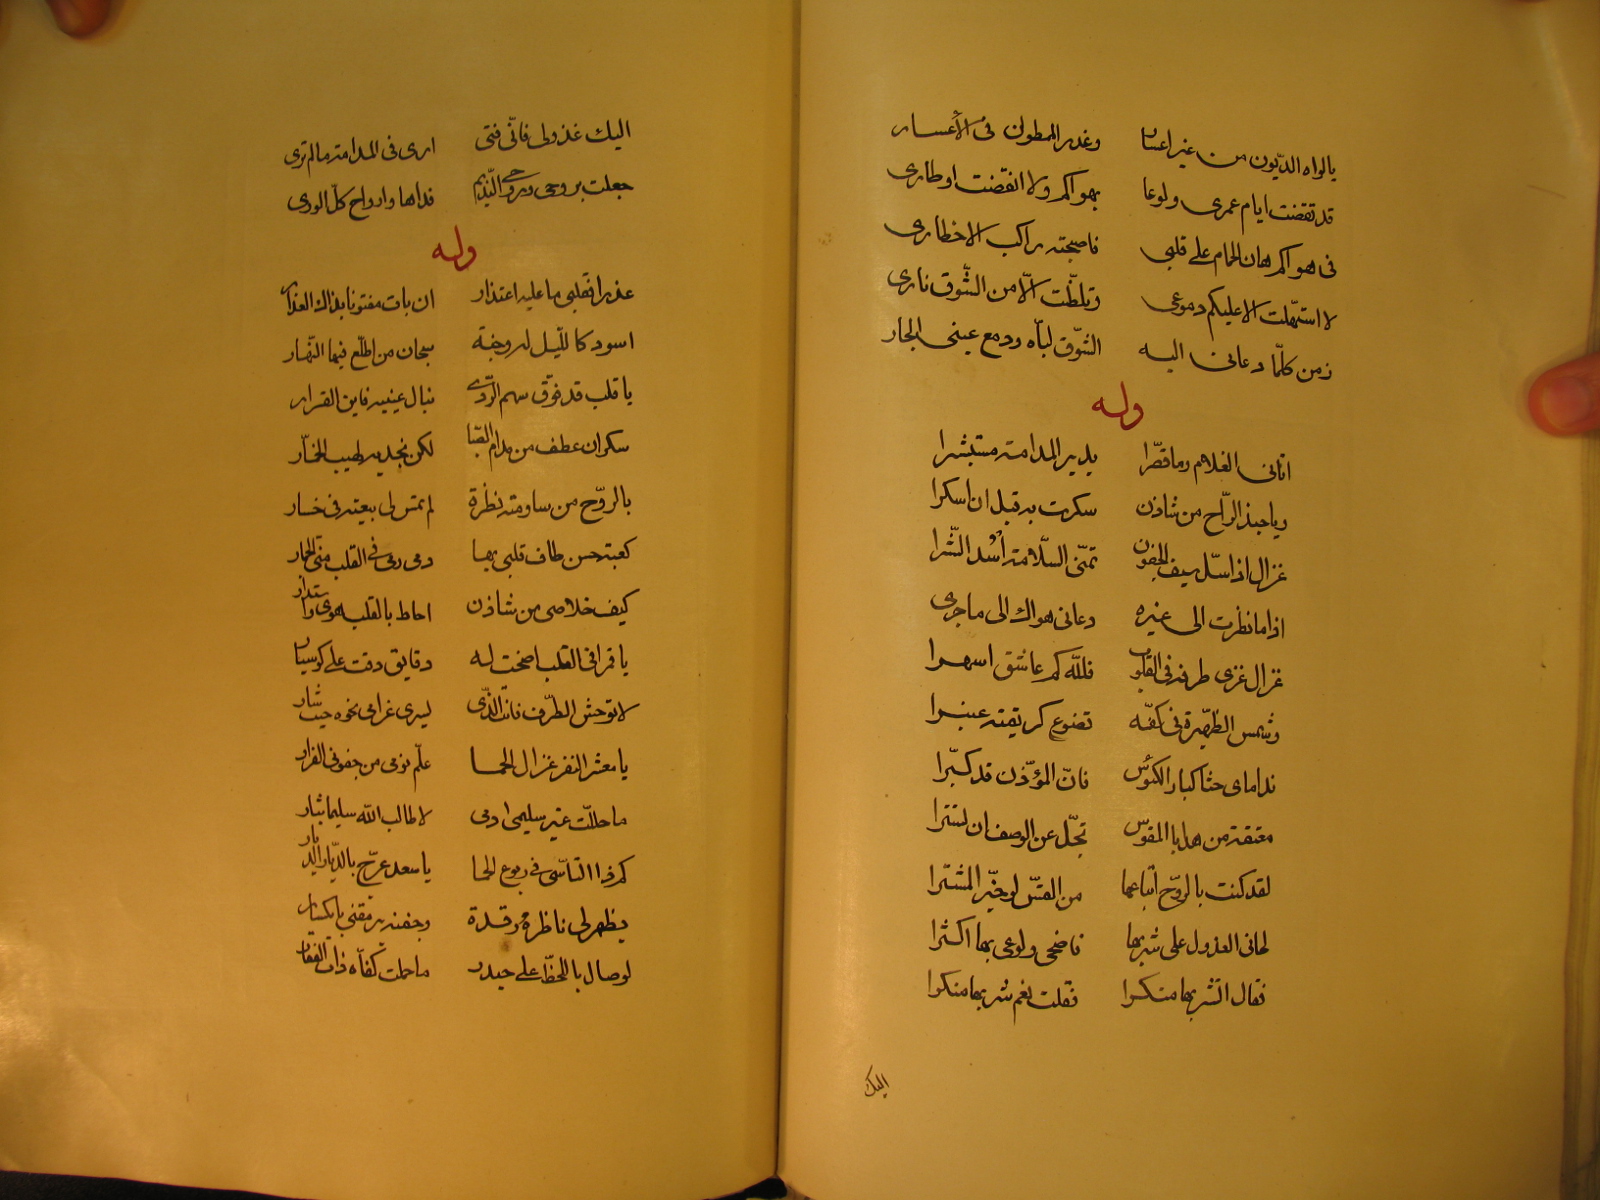 يا لواه الديّون من غير اعسار وغدر الممطول فى الأعسار
قد تقضت ايام عمرى ولوعا بهواكم ولا انقضت اوطارى
فى هواكم هان الحمام على قلبى فاصبحته راكب الاخطارى
لا استهلت الا عليكم دموعى وتلظّت الّا من الشّوق نارى
زمن كلّما دعانى اليه الشّوق لبّاه ودمع عينى الجار
وله
اتانى الغلام وما قصّرا يدير المدامة مستبشرا
وياحبذ الرّاح من شاذن سكرت به قبل ان اسكرا
غزال اذا سلّ سيف الجفون تمنّى السّلامة أسد الشّرا
اذا ما نظرت الى غيره دعانى هواك الى ما جرى
غزال غزى طرفه فى القلوب فللّه كم عاشق اسهرا
وشمس الظهيرة فى كفّه تضوع كريقته عنبرا
نداماى حثا كبار الكئوس فانّ المؤذّن قد كبّرا
معتقة من هدايا المقوّس تجلّ عن الوصف ان تسترا
لقد كنت بالروّح اتباعها من القسّ لو خيّر المشترا
لحانى العذول على شربها فاضحى ولوعى بها اكثرا
فقال اتشربها منكرا فقلت نعم شربها منكرا
اليك
اليك عذولى فانّى فتى ارى فى المدامة ما لم ترى
جعلت بروحى وروحى النّديم فداها وارواح كلّ الورى
وله
عذرا فقلبى ما عليه اعتذار ان بات مفتونا بذاك العذار
اسود كاللّيل له وجنة سبحان من اطلع فيها النّهار
يا قلب قد فوّق سهم الرّدى نبال عينيه فاين القرار
سكران عطف من مدام الصّبا لكن بخديه لهيب الخمّار
بالروّح من ساومته نظرة لم تمس لى بيعته فى خسار
كعبة حسن طاف قلبى بها ومى رمى فى القلب منّى الجمار
كيف خلاصى من شاذن احاط بالقلب هوى واستدار
يا قمرا فى القلب اضحت له دقايق دقت على كوسيار
لا توحش الطرّف فانت الذّى ليسرى غرامى نحوه حيث سار
يا معشر النفر غزال الحما علّم نومى من جفونى الفرار
ما حللّت غير سليمى دمى لا طالب اللّه سليما بثار
كم ذا التأسّى فى ربوع الحما يا سعد عرّج بالدّيار الدّيار
يظهر لى ناظره رقدة وجفنه يرمقنى بانكسار
لو صال باللحظّ على حيدر ما حملت كفّاه ذات الفقار